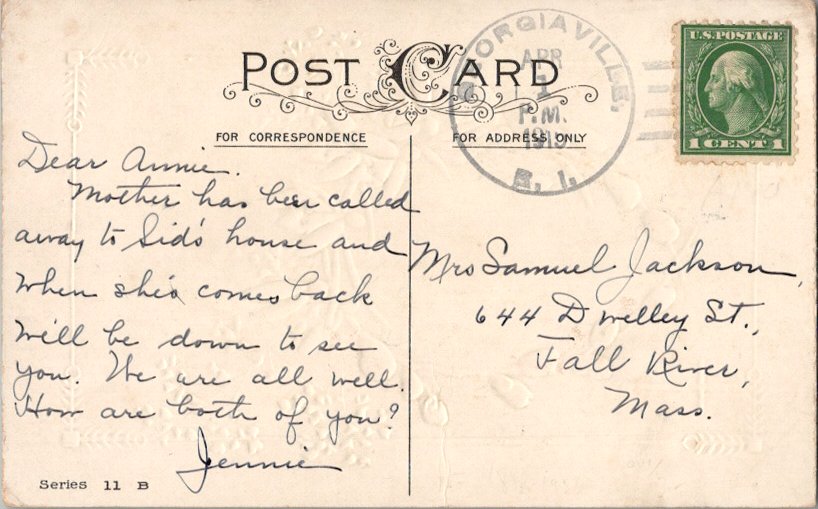 POST CARD
FOR CORRESPONDENCE
FOR ADDRESS ONLY
GEORGIAVILLE,
APR
1
P.M.
1915
R. I.
U.S. POSTAGE
1 CENT 1
Dear Annie.
Mother has been called
away to Sid's house and
when she's comes back
we'll be down to see
you. We are all well.
How are both of you?
Jennie
Mrs Samuel Jackson,
644 Dwelley St.,
Fall River,
Mass.
Series 11 B